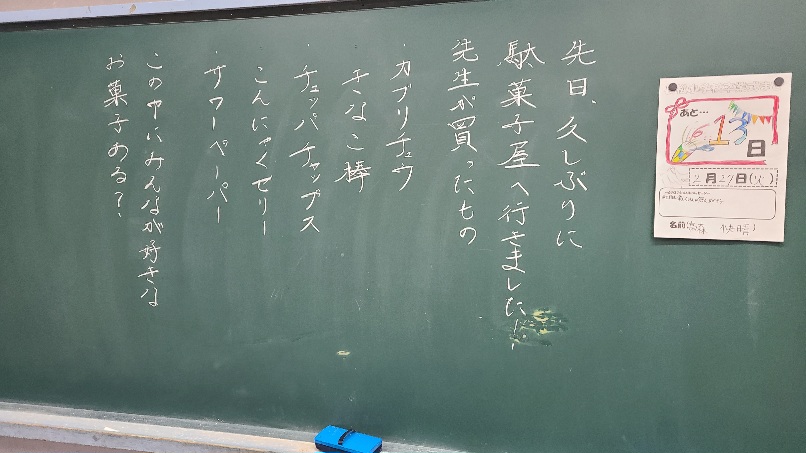 先日、久しぶりに
駄菓子屋へ行きました!
先生が買ったもの
・カプリチュウ
きなこ棒
・チュッパチャップス
こんにゃくゼリー
・サワーペーパー
この中にみんなが好きな
お菓子ある?
あと…
13
日
2月27日(火)
名前